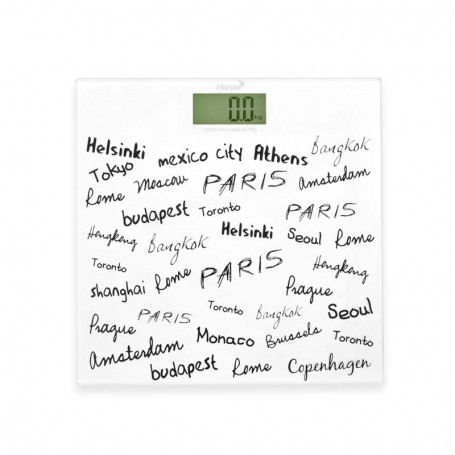 Harper
0.0 kg
Helsinki mexico city Athens Bangkok
Tokyo
Rome Moscow PARIS Amsterdam
budapest Toronto PARIS
Hongkong Bangkok Helsinki Seoul Rome
Toronto PARIS Hongkong
shanghai Rome Prague
Prague PARIS Toronto Bangkok Seoul
Amsterdam Monaco Brussels Toronto
budapest Rome Copenhagen